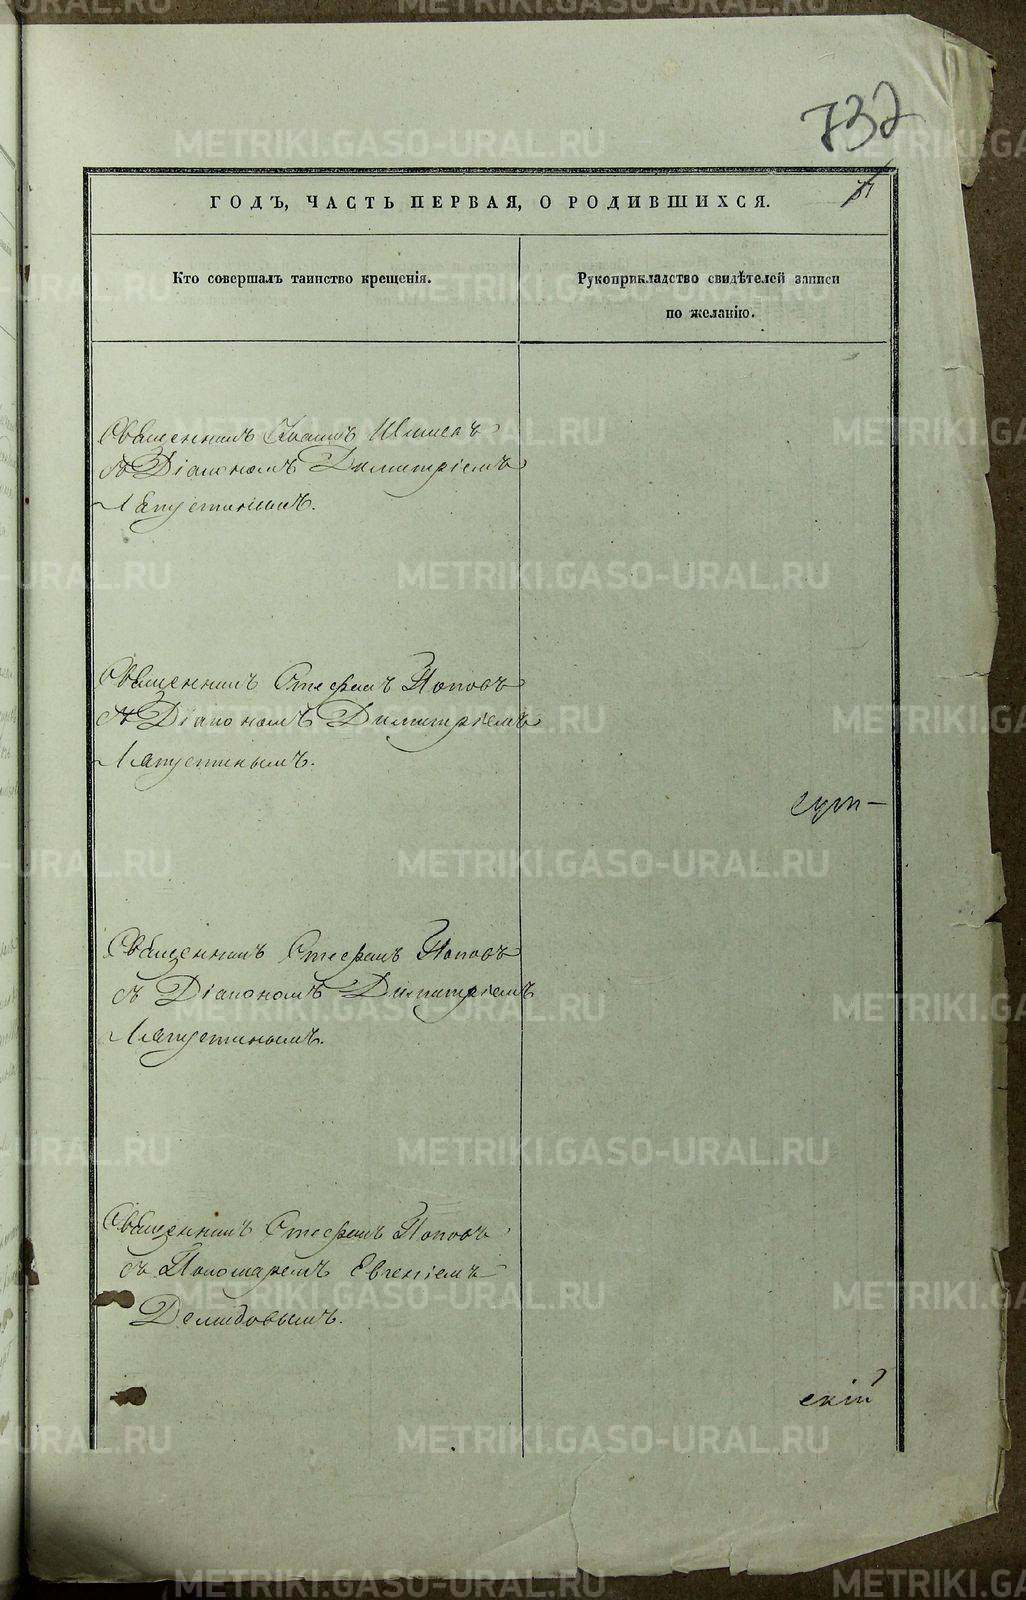 732
71
ГОДЪ, ЧАСТЬ ПЕРВАЯ, О РОДИВШИХСЯ.
Кто совершалъ таинство крещенія.
Рукоприкладство свидѣтелей записи
по желанію.
Священникъ Іоаннъ
съ Діакономъ Димитріемъ
Капустинымъ.
Священникъ Стефанъ Поповъ
съ Діакономъ Димитріемъ
Капустинымъ.
Священникъ Стефанъ Поповъ
съ Діакономъ Димитріемъ
Капустинымъ.
Священникъ Стефанъ Поповъ
съ Пономаремъ Евгеніемъ
Демидовымъ.
скій
METRIKI.GASO-URAL.RU